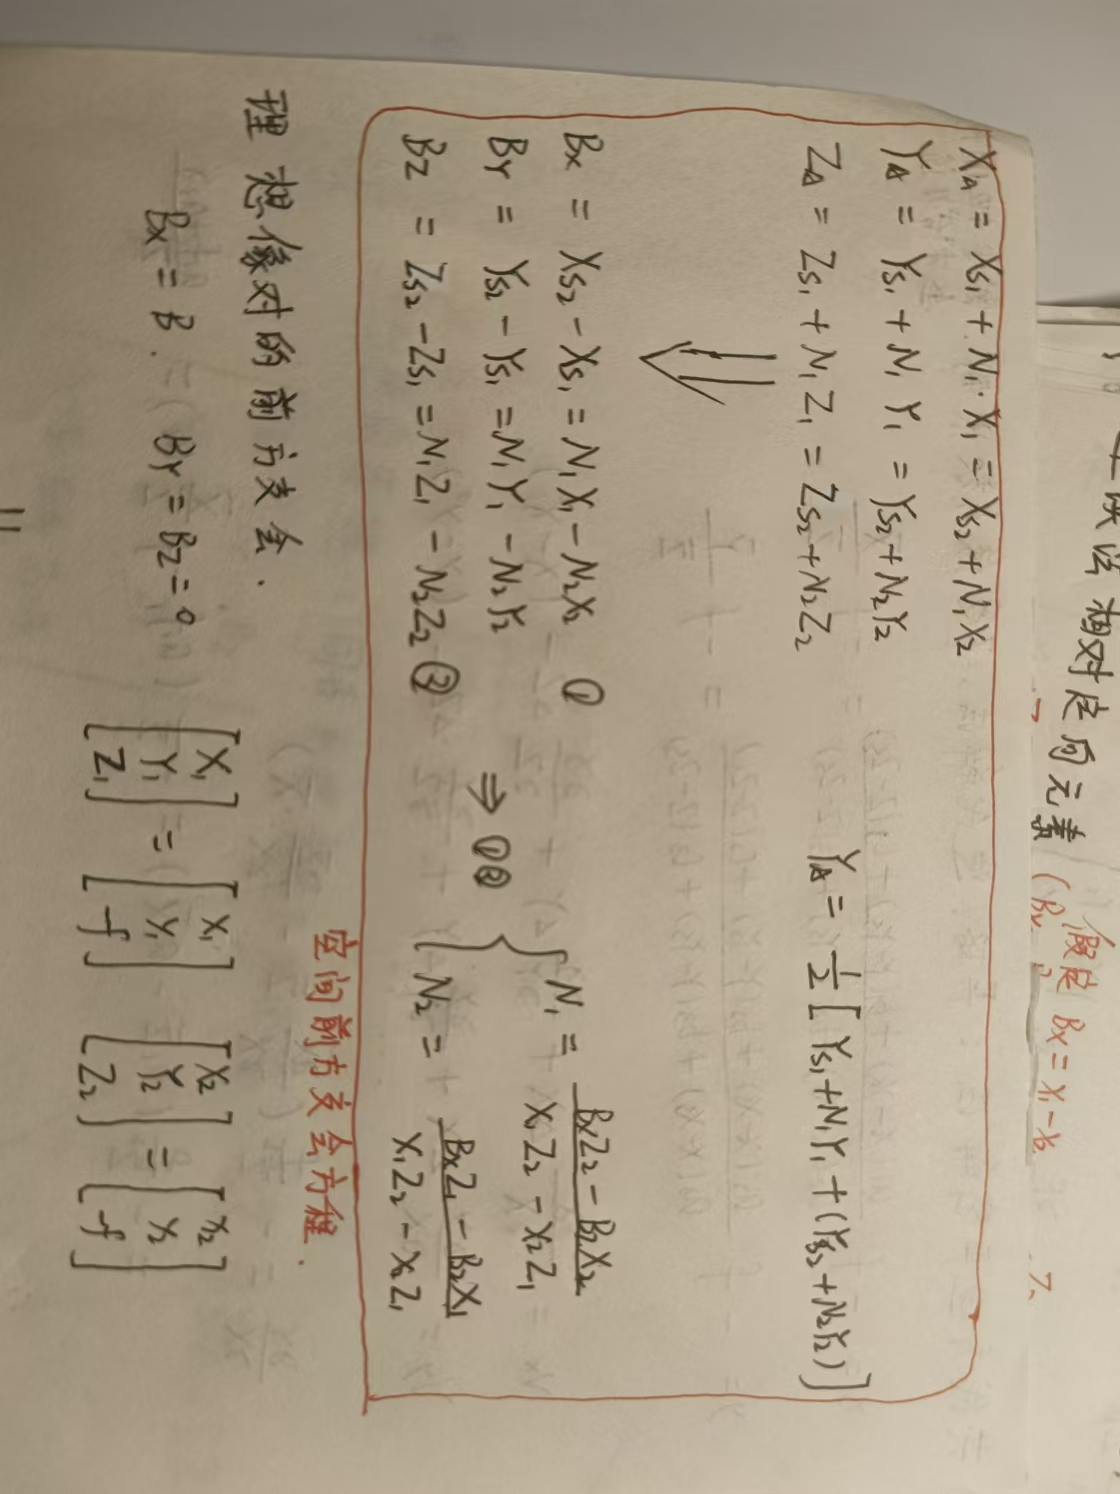 相对定向元素 (假定 Bx = X₁ -
X_A = X_S₁ + N₁·X₁ = X_S₂ + N₁X₂
Y_A = Y_S₁ + N₁Y₁ = Y_S₂ + N₂Y₂
Z_A = Z_S₁ + N₁Z₁ = Z_S₂ + N₂Z₂
Y_A = 1/2 [Y_S₁ + N₁Y₁ + (Y_S₂ + N₂Y₂)]
⇓
Bx = X_S₂ - X_S₁ = N₁X₁ - N₂X₂ ①
By = Y_S₂ - Y_S₁ = N₁Y₁ - N₂Y₂
Bz = Z_S₂ - Z_S₁ = N₁Z₁ - N₂Z₂ ②
⇒ ①② { N₁ = (BxZ₂ - BzX₂) / (X₁Z₂ - X₂Z₁)
N₂ = (BxZ₁ - BzX₁) / (X₁Z₂ - X₂Z₁)
空间前方交会方程.
理想像对的前方交会.
Bx = B. By = Bz = 0
[X₁ Y₁ Z₁] = [x₁ y₁ -f] [X₂ Y₂ Z₂] = [x₂ y₂ -f]